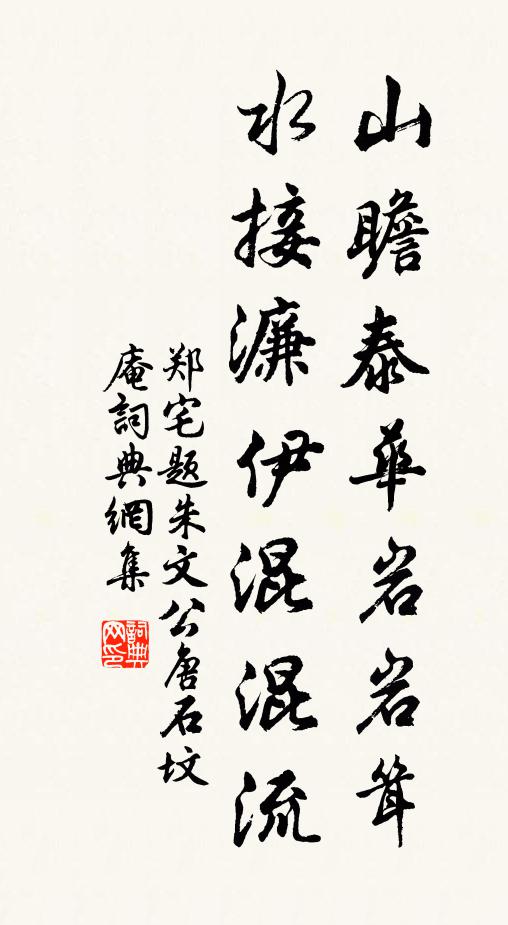 山瞻泰華岩岩聳
水接濂伊混混流
郑宅題朱文公唐石坟
庵詞典網集
詞典网印